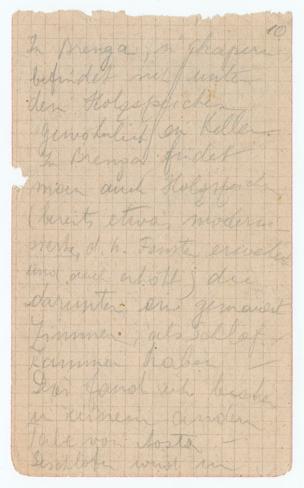 10
In Brenga, 
befindet sich unter
den Holzspeichern
gewöhnlich ein Keller.
In Brenga findet
man auch Holzspeicher
(bereits etwas moderni-
sierte, d. h. Fenster erweitert
und auch erhöht) die
darunter ein gemauert
Zimmer, als Schlaf-
kammer haben —
Dies fand ich bisher
in keinem andern
Tale von Aosta —
Geschlafen wird im